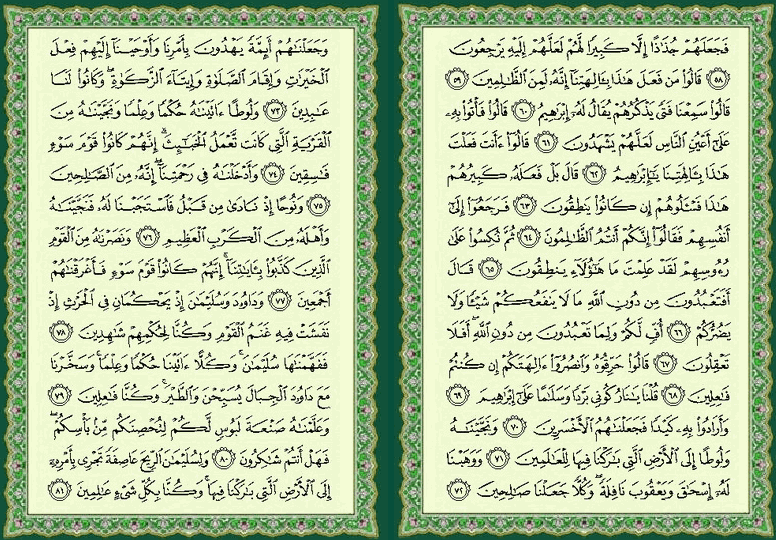 فَجَعَلَهُمْ جُذَٰذًا إِلَّا كَبِيرًا لَّهُمْ لَعَلَّهُمْ إِلَيْهِ يَرْجِعُونَ
﴿٥٨﴾ قَالُوا۟ مَن فَعَلَ هَٰذَا بِـَٔالِهَتِنَآ إِنَّهُۥ لَمِنَ ٱلظَّٰلِمِينَ ﴿٥٩﴾
قَالُوا۟ سَمِعْنَا فَتًى يَذْكُرُهُمْ يُقَالُ لَهُۥٓ إِبْرَٰهِيمُ ﴿٦٠﴾ قَالُوا۟ فَأْتُوا۟ بِهِۦ
عَلَىٰٓ أَعْيُنِ ٱلنَّاسِ لَعَلَّهُمْ يَشْهَدُونَ ﴿٦١﴾ قَالُوٓا۟ ءَأَنتَ فَعَلْتَ
هَٰذَا بِـَٔالِهَتِنَا يَٰٓإِبْرَٰهِيمُ ﴿٦٢﴾ قَالَ بَلْ فَعَلَهُۥ كَبِيرُهُمْ
هَٰذَا فَسْـَٔلُوهُمْ إِن كَانُوا۟ يَنطِقُونَ ﴿٦٣﴾ فَرَجَعُوٓا۟ إِلَىٰٓ
أَنفُسِهِمْ فَقَالُوٓا۟ إِنَّكُمْ أَنتُمُ ٱلظَّٰلِمُونَ ﴿٦٤﴾ ثُمَّ نُكِسُوا۟ عَلَىٰ
رُءُوسِهِمْ لَقَدْ عَلِمْتَ مَا هَٰٓؤُلَآءِ يَنطِقُونَ ﴿٦٥﴾ قَالَ
أَفَتَعْبُدُونَ مِن دُونِ ٱللَّهِ مَا لَا يَنفَعُكُمْ شَيْـًٔا وَلَا
يَضُرُّكُمْ ﴿٦٦﴾ أُفٍّ لَّكُمْ وَلِمَا تَعْبُدُونَ مِن دُونِ ٱللَّهِ ۖ أَفَلَا
تَعْقِلُونَ ﴿٦٧﴾ قَالُوا۟ حَرِّقُوهُ وَٱنصُرُوٓا۟ ءَالِهَتَكُمْ إِن كُنتُمْ
فَٰعِلِينَ ﴿٦٨﴾ قُلْنَا يَٰنَارُ كُونِى بَرْدًا وَسَلَٰمًا عَلَىٰٓ إِبْرَٰهِيمَ ﴿٦٩﴾
وَأَرَادُوا۟ بِهِۦ كَيْدًا فَجَعَلْنَٰهُمُ ٱلْأَخْسَرِينَ ﴿٧٠﴾ وَنَجَّيْنَٰهُ
وَلُوطًا إِلَى ٱلْأَرْضِ ٱلَّتِى بَٰرَكْنَا فِيهَا لِلْعَٰلَمِينَ ﴿٧١﴾ وَوَهَبْنَا
لَهُۥٓ إِسْحَٰقَ وَيَعْقُوبَ نَافِلَةً ۖ وَكُلًّا جَعَلْنَا صَٰلِحِينَ ﴿٧٢﴾
وَجَعَلْنَٰهُمْ أَئِمَّةً يَهْدُونَ بِأَمْرِنَا وَأَوْحَيْنَآ إِلَيْهِمْ فِعْلَ
ٱلْخَيْرَٰتِ وَإِقَامَ ٱلصَّلَوٰةِ وَإِيتَآءَ ٱلزَّكَوٰةِ ۖ وَكَانُوا۟ لَنَا
عَٰبِدِينَ ﴿٧٣﴾ وَلُوطًا ءَاتَيْنَٰهُ حُكْمًا وَعِلْمًا وَنَجَّيْنَٰهُ مِنَ
ٱلْقَرْيَةِ ٱلَّتِى كَانَت تَّعْمَلُ ٱلْخَبَٰٓئِثَ ۗ إِنَّهُمْ كَانُوا۟ قَوْمَ سَوْءٍ
فَٰسِقِينَ ﴿٧٤﴾ وَأَدْخَلْنَٰهُ فِى رَحْمَتِنَآ ۖ إِنَّهُۥ مِنَ ٱلصَّٰلِحِينَ
﴿٧٥﴾ وَنُوحًا إِذْ نَادَىٰ مِن قَبْلُ فَٱسْتَجَبْنَا لَهُۥ فَنَجَّيْنَٰهُ
وَأَهْلَهُۥ مِنَ ٱلْكَرْبِ ٱلْعَظِيمِ ﴿٧٦﴾ وَنَصَرْنَٰهُ مِنَ ٱلْقَوْمِ
ٱلَّذِينَ كَذَّبُوا۟ بِـَٔايَٰتِنَآ ۚ إِنَّهُمْ كَانُوا۟ قَوْمَ سَوْءٍ فَأَغْرَقْنَٰهُمْ
أَجْمَعِينَ ﴿٧٧﴾ وَدَاوُۥدَ وَسُلَيْمَٰنَ إِذْ يَحْكُمَانِ فِى ٱلْحَرْثِ إِذْ
نَفَشَتْ فِيهِ غَنَمُ ٱلْقَوْمِ وَكُنَّا لِحُكْمِهِمْ شَٰهِدِينَ ﴿٧٨﴾
فَفَهَّمْنَٰهَا سُلَيْمَٰنَ ۚ وَكُلًّا ءَاتَيْنَا حُكْمًا وَعِلْمًا ۚ وَسَخَّرْنَا
مَعَ دَاوُۥدَ ٱلْجِبَالَ يُسَبِّحْنَ وَٱلطَّيْرَ ۚ وَكُنَّا فَٰعِلِينَ ﴿٧٩﴾
وَعَلَّمْنَٰهُ صَنْعَةَ لَبُوسٍ لَّكُمْ لِتُحْصِنَكُم مِّنۢ بَأْسِكُمْ ۖ
فَهَلْ أَنتُمْ شَٰكِرُونَ ﴿٨٠﴾ وَلِسُلَيْمَٰنَ ٱلرِّيحَ عَاصِفَةً تَجْرِى بِأَمْرِهِۦٓ
إِلَى ٱلْأَرْضِ ٱلَّتِى بَٰرَكْنَا فِيهَا ۚ وَكُنَّا بِكُلِّ شَىْءٍ عَٰلِمِينَ ﴿٨١﴾